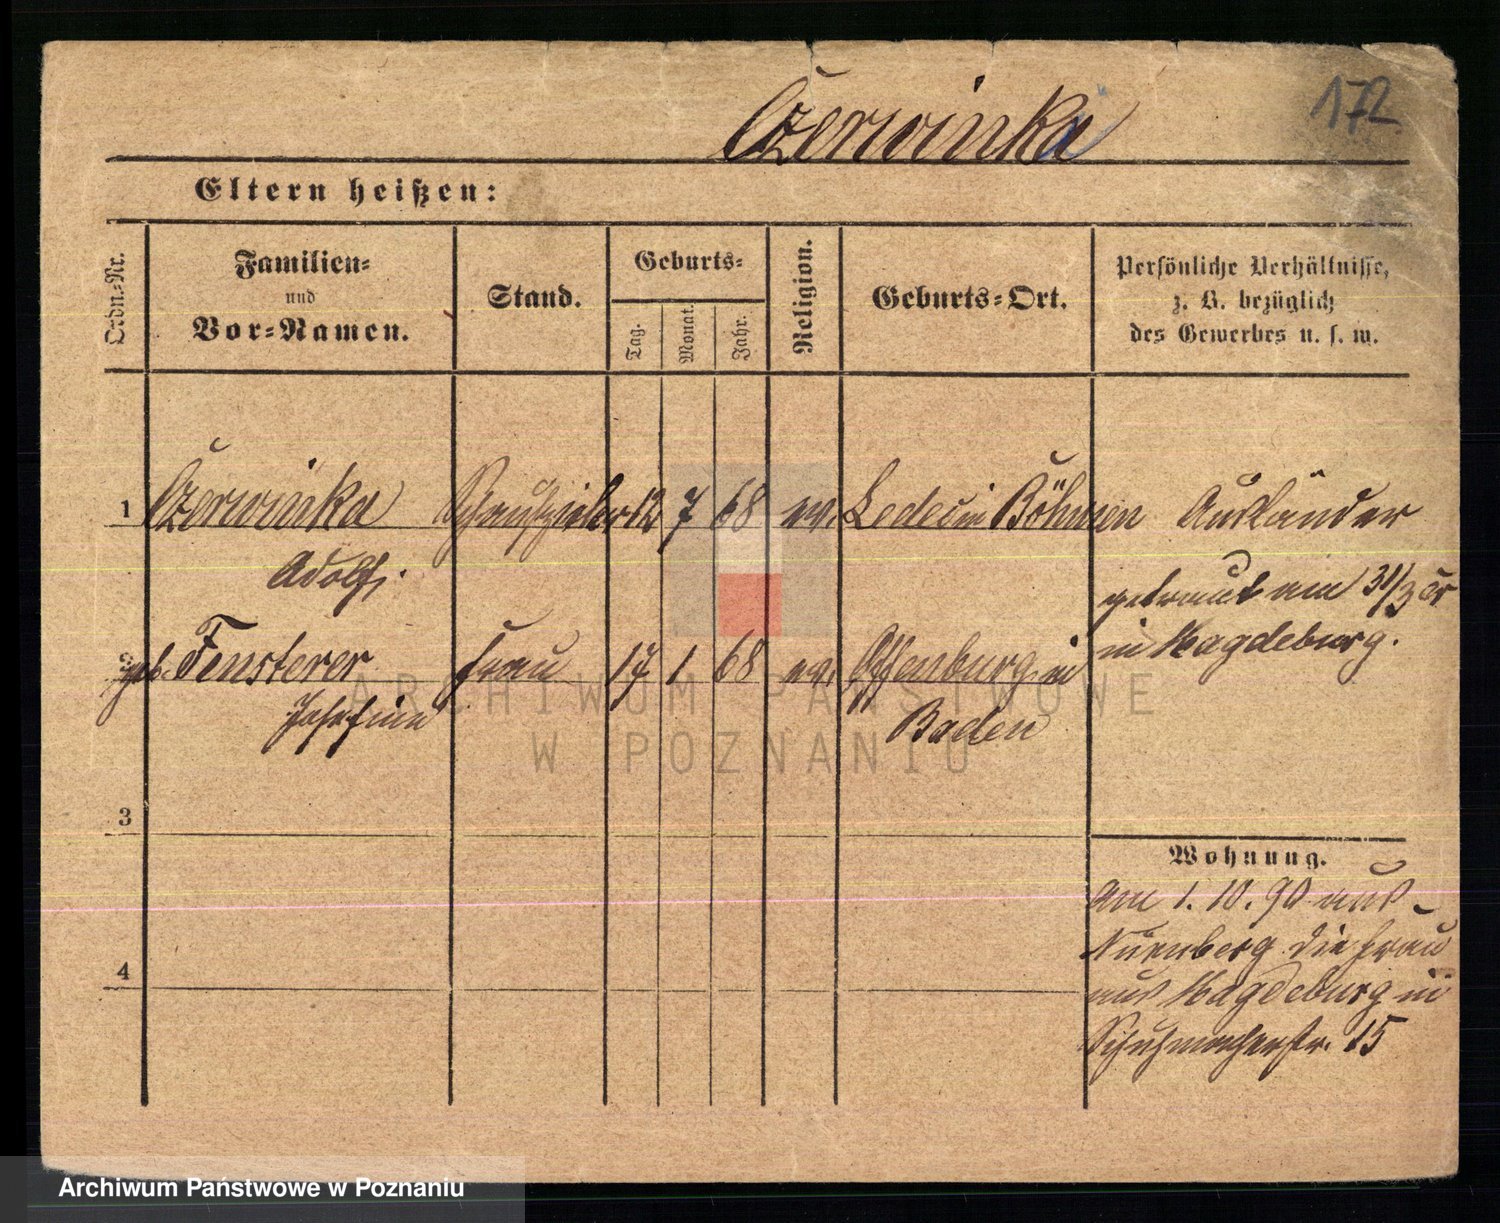 Czerwinka
172
Eltern heißen:
Ordn.-Nr.
Familien-
und
Vor-Namen.
Stand.
Geburts-
Tag.
Monat.
Jahr.
Religion.
Geburts-Ort.
Persönliche Verhältnisse,
z. B. bezüglich
des Gewerbes u. s. w.
1 Czerwinka Schauspieler 12 7 68 ev. Ledec in Böhmen Ausländer
Adolf,
getraut am 31/3 cr
in Magdeburg.
2 geb. Fensterer Frau 17 1 68 ev. Offenburg in
Josefine Baden
ARCHIWUM PAŃSTWOWE
W POZNANIU
3
Wohnung.
am 1. 10. 90 aus
Nürnberg die Frau
4
aus Magdeburg in
Schuhmacherstr. 15
Archiwum Państwowe w Poznaniu